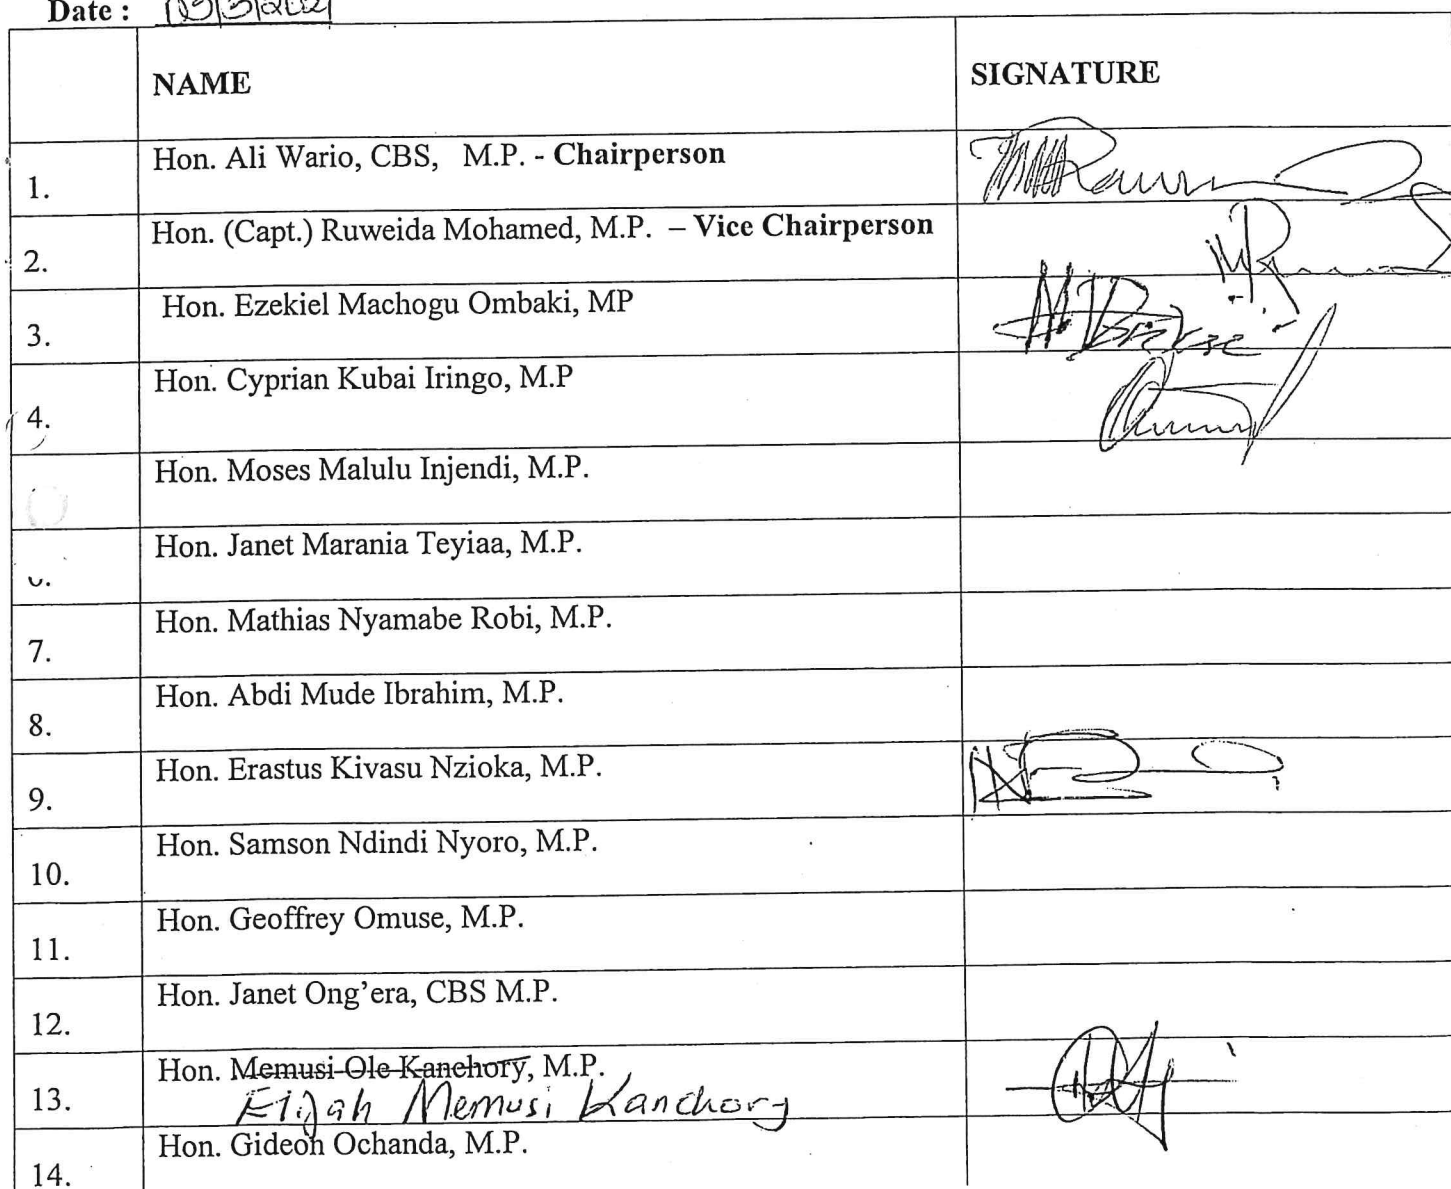 Date :
NAME SIGNATURE
1. Hon. Ali Wario, CBS, M.P. - Chairperson
2. Hon. (Capt.) Ruweida Mohamed, M.P. – Vice Chairperson
3. Hon. Ezekiel Machogu Ombaki, MP
4. Hon. Cyprian Kubai Iringo, M.P
Hon. Moses Malulu Injendi, M.P.
Hon. Janet Marania Teyiaa, M.P.
7. Hon. Mathias Nyamabe Robi, M.P.
8. Hon. Abdi Mude Ibrahim, M.P.
9. Hon. Erastus Kivasu Nzioka, M.P.
10. Hon. Samson Ndindi Nyoro, M.P.
11. Hon. Geoffrey Omuse, M.P.
12. Hon. Janet Ong’era, CBS M.P.
13. Hon. Memusi Ole Kanchory, M.P.
Elijah Memusi Kanchory
14. Hon. Gideon Ochanda, M.P.